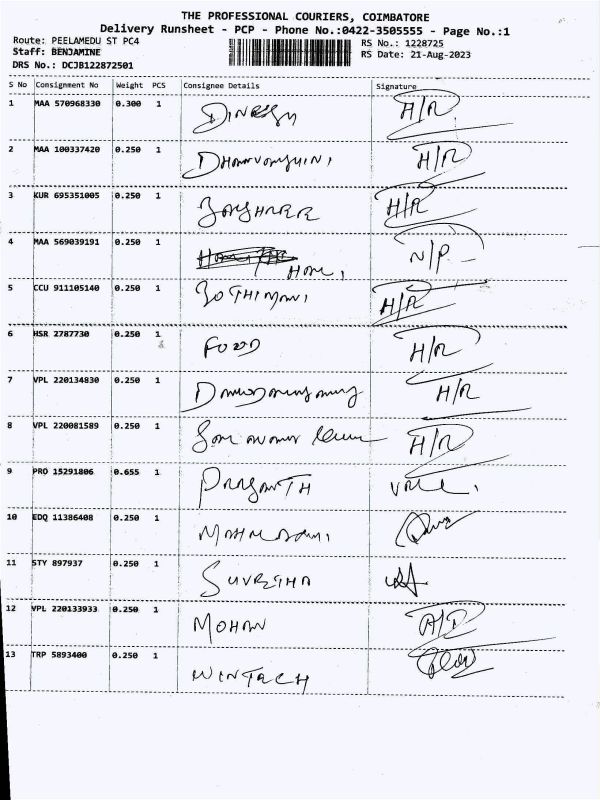 THE PROFESSIONAL COURIERS, COIMBATORE
Delivery Runsheet - PCP - Phone No.:0422-3505555 - Page No.:1
Route: PEELAMEDU ST PC4
RS No.: 1228725
Staff: BENJAMINE
RS Date: 21-Aug-2023
DRS No.: DCJB122872501
S No Consignment No Weight PCS Consignee Details Signature
1 MAA 570968330 0.300 1 DINESH H/R
2 MAA 100337420 0.250 1 H/R
3 KUR 695351005 0.250 1 H/R
4 MAA 569039191 0.250 1 N/P
5 CCU 911105140 0.250 1 JOTHIMANI H/R
6 HSR 2787730 0.250 1 FOOD H/R
7 VPL 220134830 0.250 1 H/R
8 VPL 220081589 0.250 1 H/R
9 PRO 15291806 0.655 1 PRASANTH
10 EDQ 11386408 0.250 1
11 STY 897937 0.250 1 SUVRETHA
12 VPL 220133933 0.250 1 MOHAN H/R
13 TRP 5893400 0.250 1 WINTECH